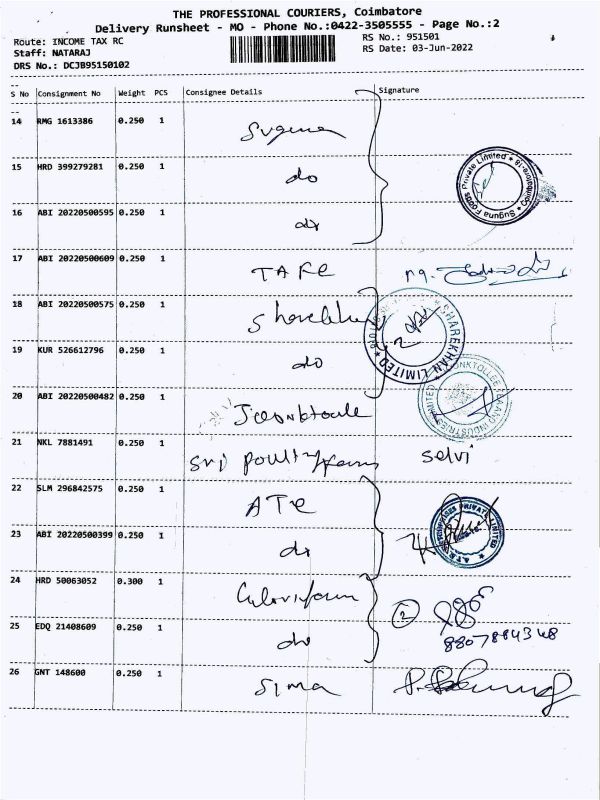 THE PROFESSIONAL COURIERS, Coimbatore
Delivery Runsheet - MO - Phone No.:0422-3505555 - Page No.:2
Route: INCOME TAX RC RS No.: 951501
Staff: NATARAJ RS Date: 03-Jun-2022
DRS No.: DCJB95150102
S No Consignment No Weight PCS Consignee Details Signature
14 RMG 1613386 0.250 1 Suguna
15 HRD 399279281 0.250 1 do
Suguna Foods Private Limited * Coimbatore-18 *
16 ABI 20220500595 0.250 1 do
17 ABI 20220500609 0.250 1 TAFE
18 ABI 20220500575 0.250 1 Sharekhan
SHAREKHAN LIMITED
19 KUR 526612796 0.250 1 do
20 ABI 20220500482 0.250 1
INDUSTRIES LIMITED
21 NKL 7881491 0.250 1 Sri poultry farm selvi
22 SLM 296842575 0.250 1 ATE
ENTERPRISES PRIVATE LIMITED
23 ABI 20220500399 0.250 1 do
24 HRD 50063052 0.300 1 2
25 EDQ 21408609 0.250 1 do
26 GNT 148600 0.250 1 Sima